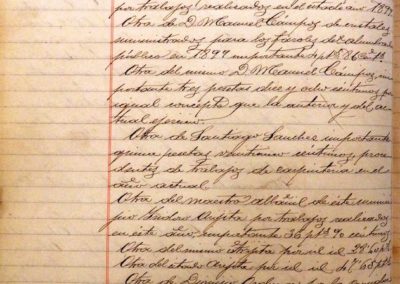 por trabajos realizados en el citado año 1897
Otra de D. Manuel Campos de cristales
suministrados para los faroles del alumbrado
público en 1897 importante
Otra del mismo D. Manuel Campos im
portante tres pesetas diez y ocho céntimos por
igual concepto que la anterior y del ac
tual ejercicio.
Otra de Santiago Sanchez importante
pesetas veintiuno céntimos proce
dentes de trabajos de carpinteria en el
año actual.
Otra del maestro albañil de este munici
pio por trabajos realizados
en este año, importante 36 pts 13 céntimos
Otra del mismo por id id
Otra del citado por id id
Otra de